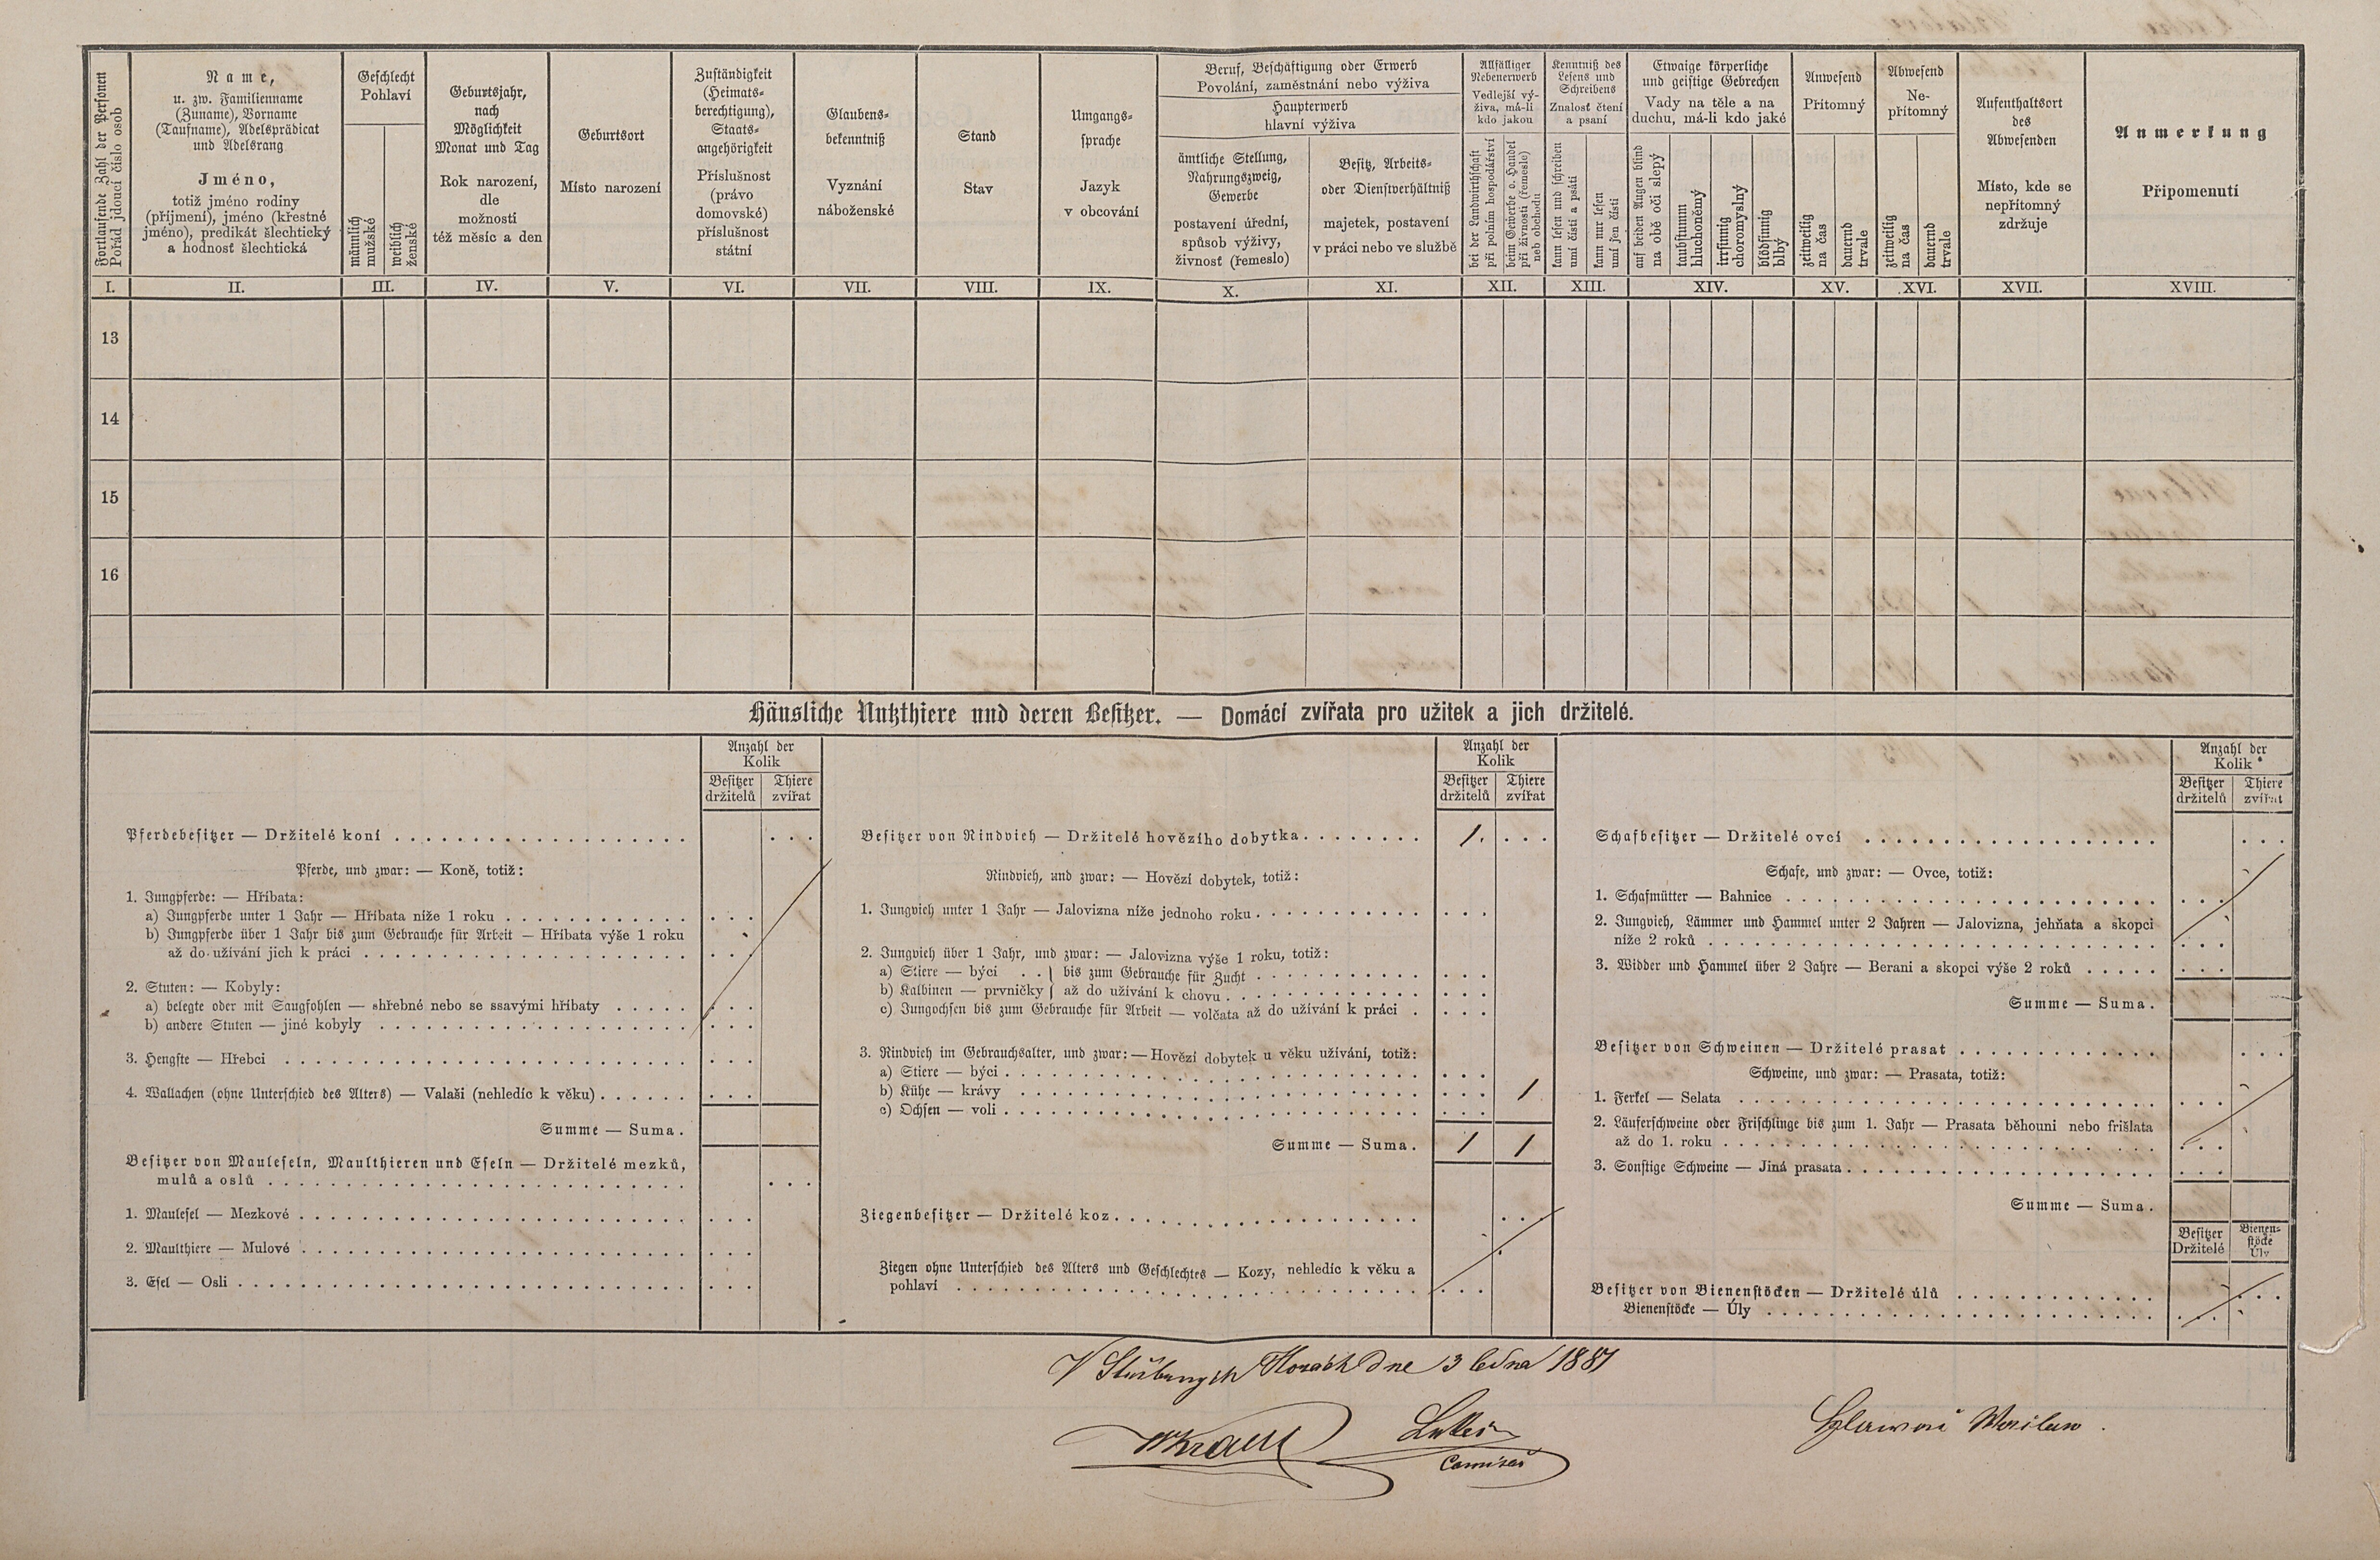 Fortlaufende Zahl der Personen
Pořád jdoucí číslo osob
Name,
u. zw. Familienname
(Zuname), Vorname
(Taufname), Adelsprädicat
und Adelsrang
Jméno,
totiž jméno rodiny
(příjmení), jméno (křestné
jméno), predikát šlechtický
a hodnosť šlechtická
Geschlecht
Pohlaví
männlich
mužské
weiblich
ženské
Geburtsjahr,
nach
Möglichkeit
Monat und Tag
Rok narození,
dle
možnosti
též měsíc a den
Geburtsort
Místo narození
Zuständigkeit
(Heimats-
berechtigung),
Staats-
angehörigkeit
Příslušnost
(právo
domovské)
příslušnost
státní
Glaubens-
bekenntniß
Vyznání
náboženské
Stand
Stav
Umgangs-
sprache
Jazyk
v obcování
Beruf, Beschäftigung oder Erwerb
Povolání, zaměstnání nebo výživa
Haupterwerb
hlavní výživa
ämtliche Stellung,
Nahrungszweig,
Gewerbe
postavení úřední,
spůsob výživy,
živnosť (řemeslo)
Besitz, Arbeits-
oder Dienstverhältniß
majetek, postavení
v práci nebo ve službě
Allfälliger
Nebenerwerb
Vedlejší vý-
živa, má-li
kdo jakou
bei der Landwirthschaft
při polním hospodářství
beim Gewerbe o. Handel
při živnosti (řemesle)
neb obchodu
Kenntniß des
Lesens und
Schreibens
Znalosť čtení
a psaní
kann lesen und schreiben
umí čísti a psáti
kann nur lesen
umí jen čísti
Etwaige körperliche
und geistige Gebrechen
Vady na těle a na
duchu, má-li kdo jaké
auf beiden Augen blind
na obě oči slepý
taubstumm
hluchoněmý
irrsinnig
choromyslný
blödsinnig
blbý
Anwesend
Přítomný
zeitweilig
na čas
dauernd
trvale
Abwesend
Ne-
přítomný
zeitweilig
na čas
dauernd
trvale
Aufenthaltsort
des
Abwesenden
Místo, kde se
nepřítomný
zdržuje
Anmerkung
Připomenutí
I. II. III. IV. V. VI. VII. VIII. IX. X. XI. XII. XIII. XIV. XV. XVI. XVII. XVIII.
13
14
15
16
Häusliche Nutzthiere und deren Besitzer. — Domácí zvířata pro užitek a jich držitelé.
Anzahl der
Kolik
Besitzer Thiere
držitelů zvířat
Pferdebesitzer — Držitelé koní
Pferde, und zwar: — Koně, totiž:
1. Jungpferde: — Hříbata:
a) Jungpferde unter 1 Jahr — Hříbata níže 1 roku
b) Jungpferde über 1 Jahr bis zum Gebrauche für Arbeit — Hříbata výše 1 roku
až do užívání jich k práci
2. Stuten: — Kobyly:
a) belegte oder mit Saugfohlen — shřebné nebo se ssavými hříbaty
b) andere Stuten — jiné kobyly
3. Hengste — Hřebci
4. Wallachen (ohne Unterschied des Alters) — Valaši (nehledíc k věku)
Summe — Suma.
Besitzer von Mauleseln, Maulthieren und Eseln — Držitelé mezků,
mulů a oslů
1. Maulesel — Mezkové
2. Maulthiere — Mulové
3. Esel — Osli
Anzahl der
Kolik
Besitzer Thiere
držitelů zvířat
Besitzer von Rindvieh — Držitelé hovězího dobytka 1.
Rindvieh, und zwar: — Hovězí dobytek, totiž:
1. Jungvieh unter 1 Jahr — Jalovizna níže jednoho roku
2. Jungvieh über 1 Jahr, und zwar: — Jalovizna výše 1 roku, totiž:
a) Stiere — býci . . } bis zum Gebrauche für Zucht
b) Kalbinen — prvničky } až do užívání k chovu
c) Jungochsen bis zum Gebrauche für Arbeit — volčata až do užívání k práci
3. Rindvieh im Gebrauchsalter, und zwar: — Hovězí dobytek u věku užívání, totiž:
a) Stiere — býci
b) Kühe — krávy 1
c) Ochsen — voli
Summe — Suma. 1 1
Ziegenbesitzer — Držitelé koz
Ziegen ohne Unterschied des Alters und Geschlechtes — Kozy, nehledíc k věku a
pohlaví
Anzahl der
Kolik
Besitzer Thiere
držitelů zvířat
Schafbesitzer — Držitelé ovcí
Schafe, und zwar: — Ovce, totiž:
1. Schafmütter — Bahnice
2. Jungvieh, Lämmer und Hammel unter 2 Jahren — Jalovizna, jehňata a skopci
níže 2 roků
3. Widder und Hammel über 2 Jahre — Berani a skopci výše 2 roků
Summe — Suma.
Besitzer von Schweinen — Držitelé prasat
Schweine, und zwar: — Prasata, totiž:
1. Ferkel — Selata
2. Läuferschweine oder Frischlinge bis zum 1. Jahr — Prasata běhouni nebo frišlata
až do 1. roku
3. Sonstige Schweine — Jiná prasata
Summe — Suma.
Besitzer Bienen-
stöcke
Držitelé Úly
Besitzer von Bienenstöcken — Držitelé úlů
Bienenstöcke — Úly
V Horách dne 3 ledna 1881